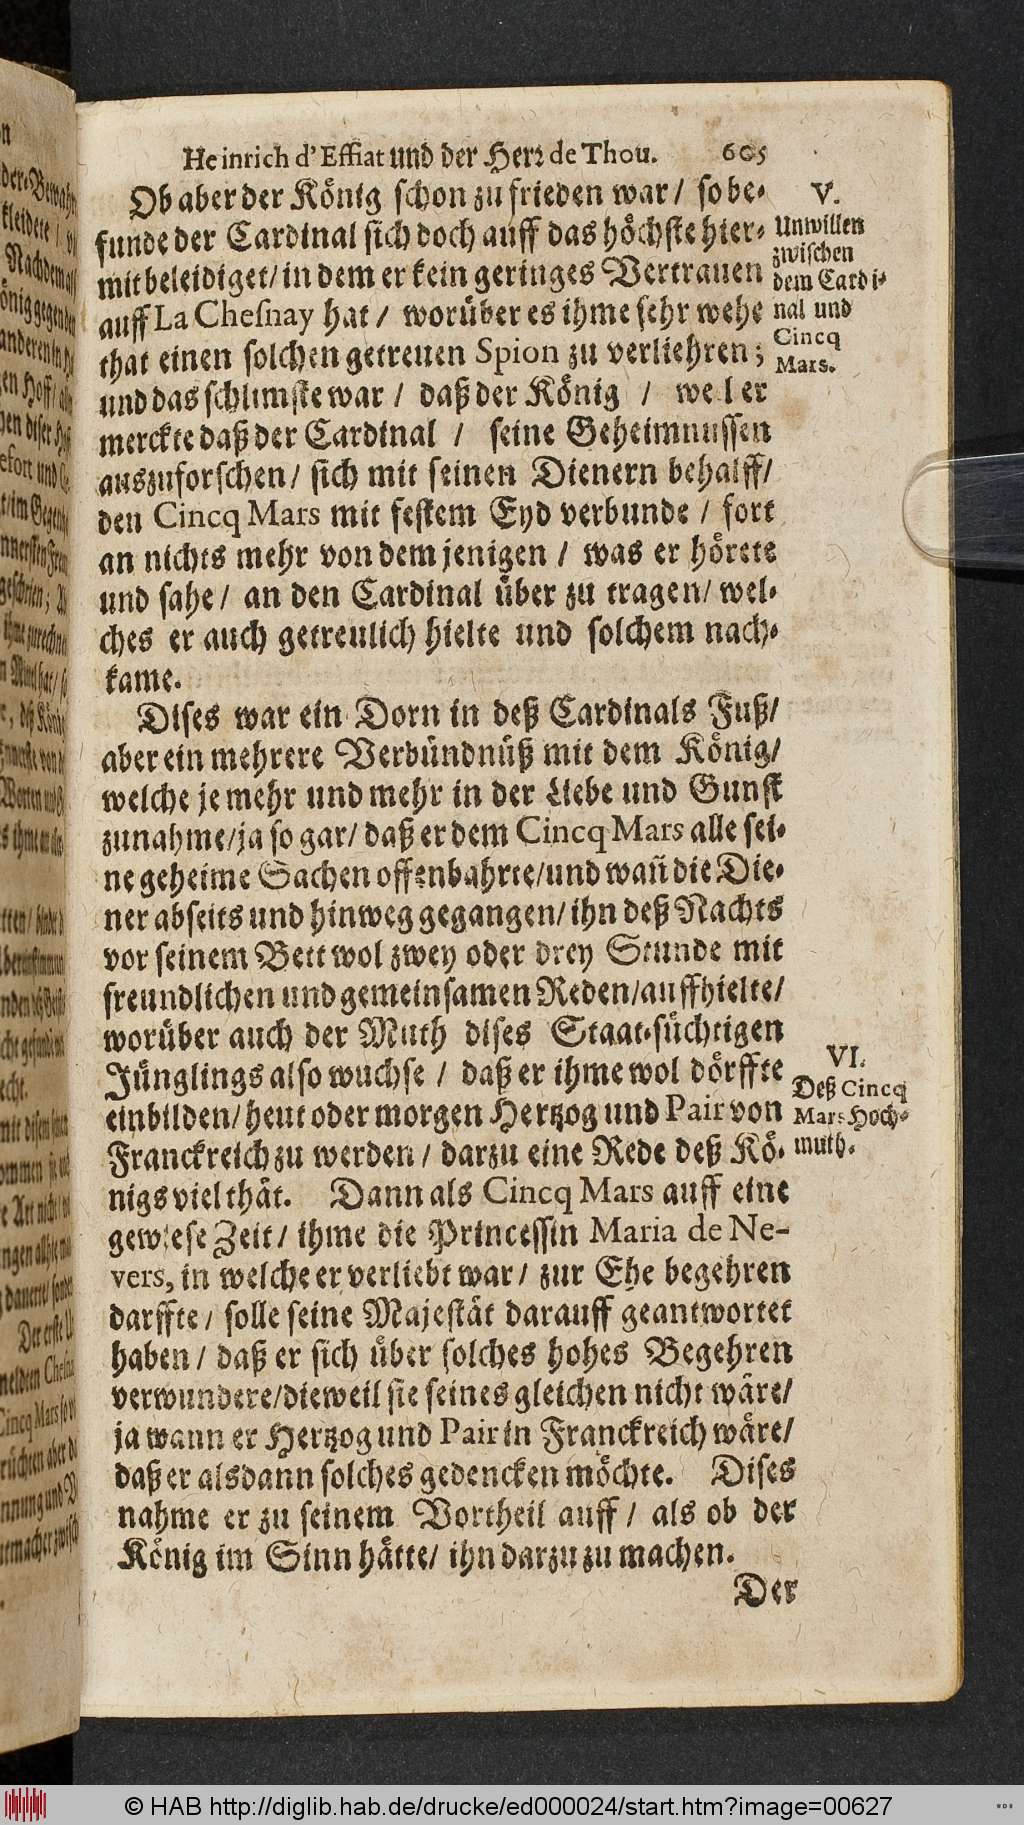 Heinrich d'Effiat und der Herꝛ de Thou. 605
Ob aber der König schon zu frieden war / so be-
funde der Cardinal sich doch auff das höchste hier-
mit beleidiget / in dem er kein geringes Vertrauen
auff La Chesnay hat / worüber es ihme sehr wehe
that einen solchen getreuen Spion zu verliehren;
und das schlimste war / daß der König / weil er
merckte daß der Cardinal / seine Geheimnussen
auszuforschen / sich mit seinen Dienern behalff /
den Cincq Mars mit festem Eyd verbunde / fort
an nichts mehr von dem jenigen / was er hörete
und sahe / an den Cardinal über zu tragen / wel-
ches er auch getreulich hielte und solchem nach-
kame.
V.
Unwillen
zwischen
dem Cardi-
nal und
Cincq
Mars.
Dises war ein Dorn in deß Cardinals Fuß /
aber ein mehrere Verbündnüß mit dem König /
welche je mehr und mehr in der Liebe und Gunst
zunahme / ja so gar / daß er dem Cincq Mars alle sei-
ne geheime Sachen offenbahrte / und wañ die Die-
ner abseits und hinweg gegangen / ihn deß Nachts
vor seinem Bett wol zwey oder drey Stunde mit
freundlichen und gemeinsamen Reden / auffhielte /
worüber auch der Muth dises Staat-süchtigen
Jünglings also wuchse / daß er ihme wol dörffte
einbilden / heut oder morgen Hertzog und Pair von
Franckreich zu werden / darzu eine Rede deß Kö-
nigs viel thät. Dann als Cincq Mars auff eine
gewiese Zeit / ihme die Princessin Maria de Ne-
vers, in welche er verliebt war / zur Ehe begehren
darffte / solle seine Majestät darauff geantwortet
haben / daß er sich über solches hohes Begehren
verwundere / dieweil sie seines gleichen nicht wäre /
ja wann er Hertzog und Pair in Franckreich wäre /
daß er alsdann solches gedencken möchte. Dises
nahme er zu seinem Vortheil auff / als ob der
König im Sinn hätte / ihn darzu zu machen.
VI.
Deß Cincq
Mars Hoch-
muth.
Der
© HAB http://diglib.hab.de/drucke/ed000024/start.htm?image=00627